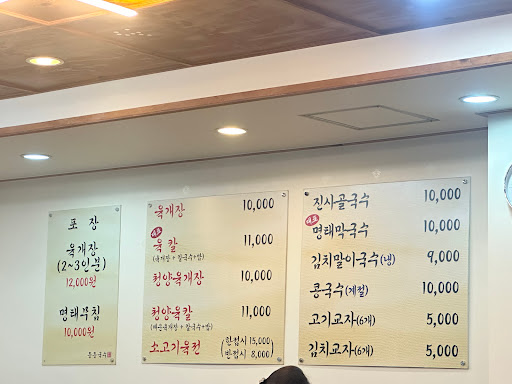 포 장
육개장
(2~3인분)
12,000원
명태무침
10,000원
육개장 10,000
대표
육 칼 11,000
(육개장 + 칼국수+밥)
청양육개장 10,000
청양육칼 11,000
(매운육개장 + 칼국수+밥)
소고기육전 (한접시 15,000)
(반접시 8,000)
진사골국수 10,000
대표
명태막국수 10,000
김치말이국수(냉) 9,000
콩국수(계절) 10,000
고기교자(6개) 5,000
김치교자(6개) 5,000